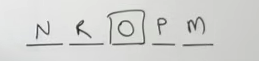 N R O P M